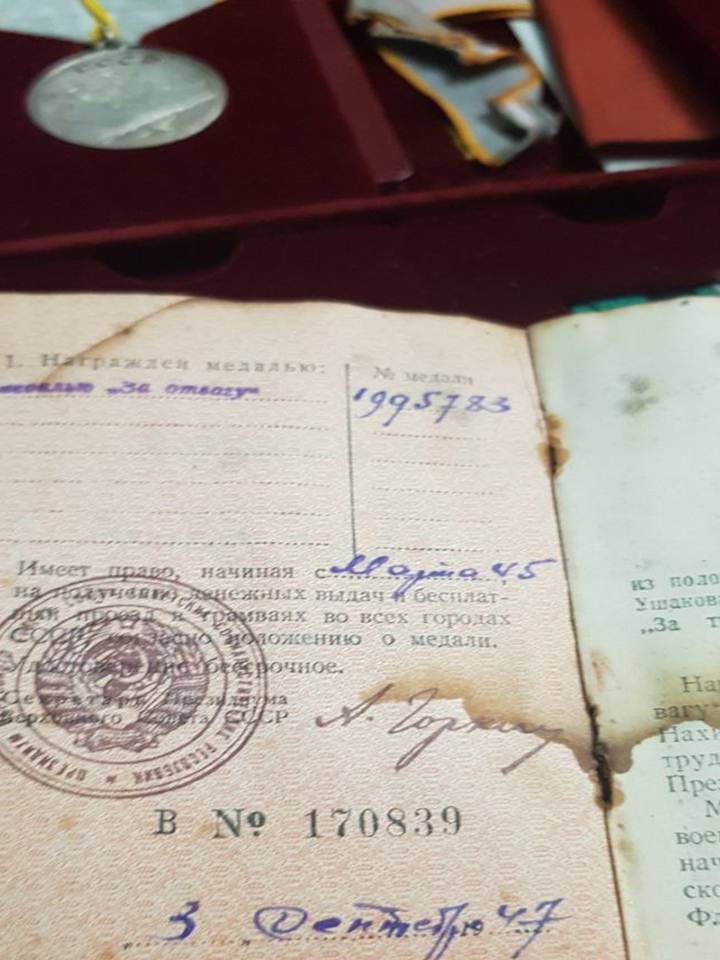 СССР
1. Награжден медалью:
№ медали
медалью „За отвагу“
1995783
Имеет право, начиная с Марта 45
на получение денежных выдач и бесплат-
ный проезд в трамваях во всех городах
СССР, согласно положению о медали.
Удостоверение бессрочное.
Секретарь Президиума
Верховного Совета СССР
А. Горкин
В № 170839
„ 3 “ Сентября 1947
из поло
Ушаков
„За т
На
вагу
Нахи
труд
Пре
М
воен
нач
ско
Фл